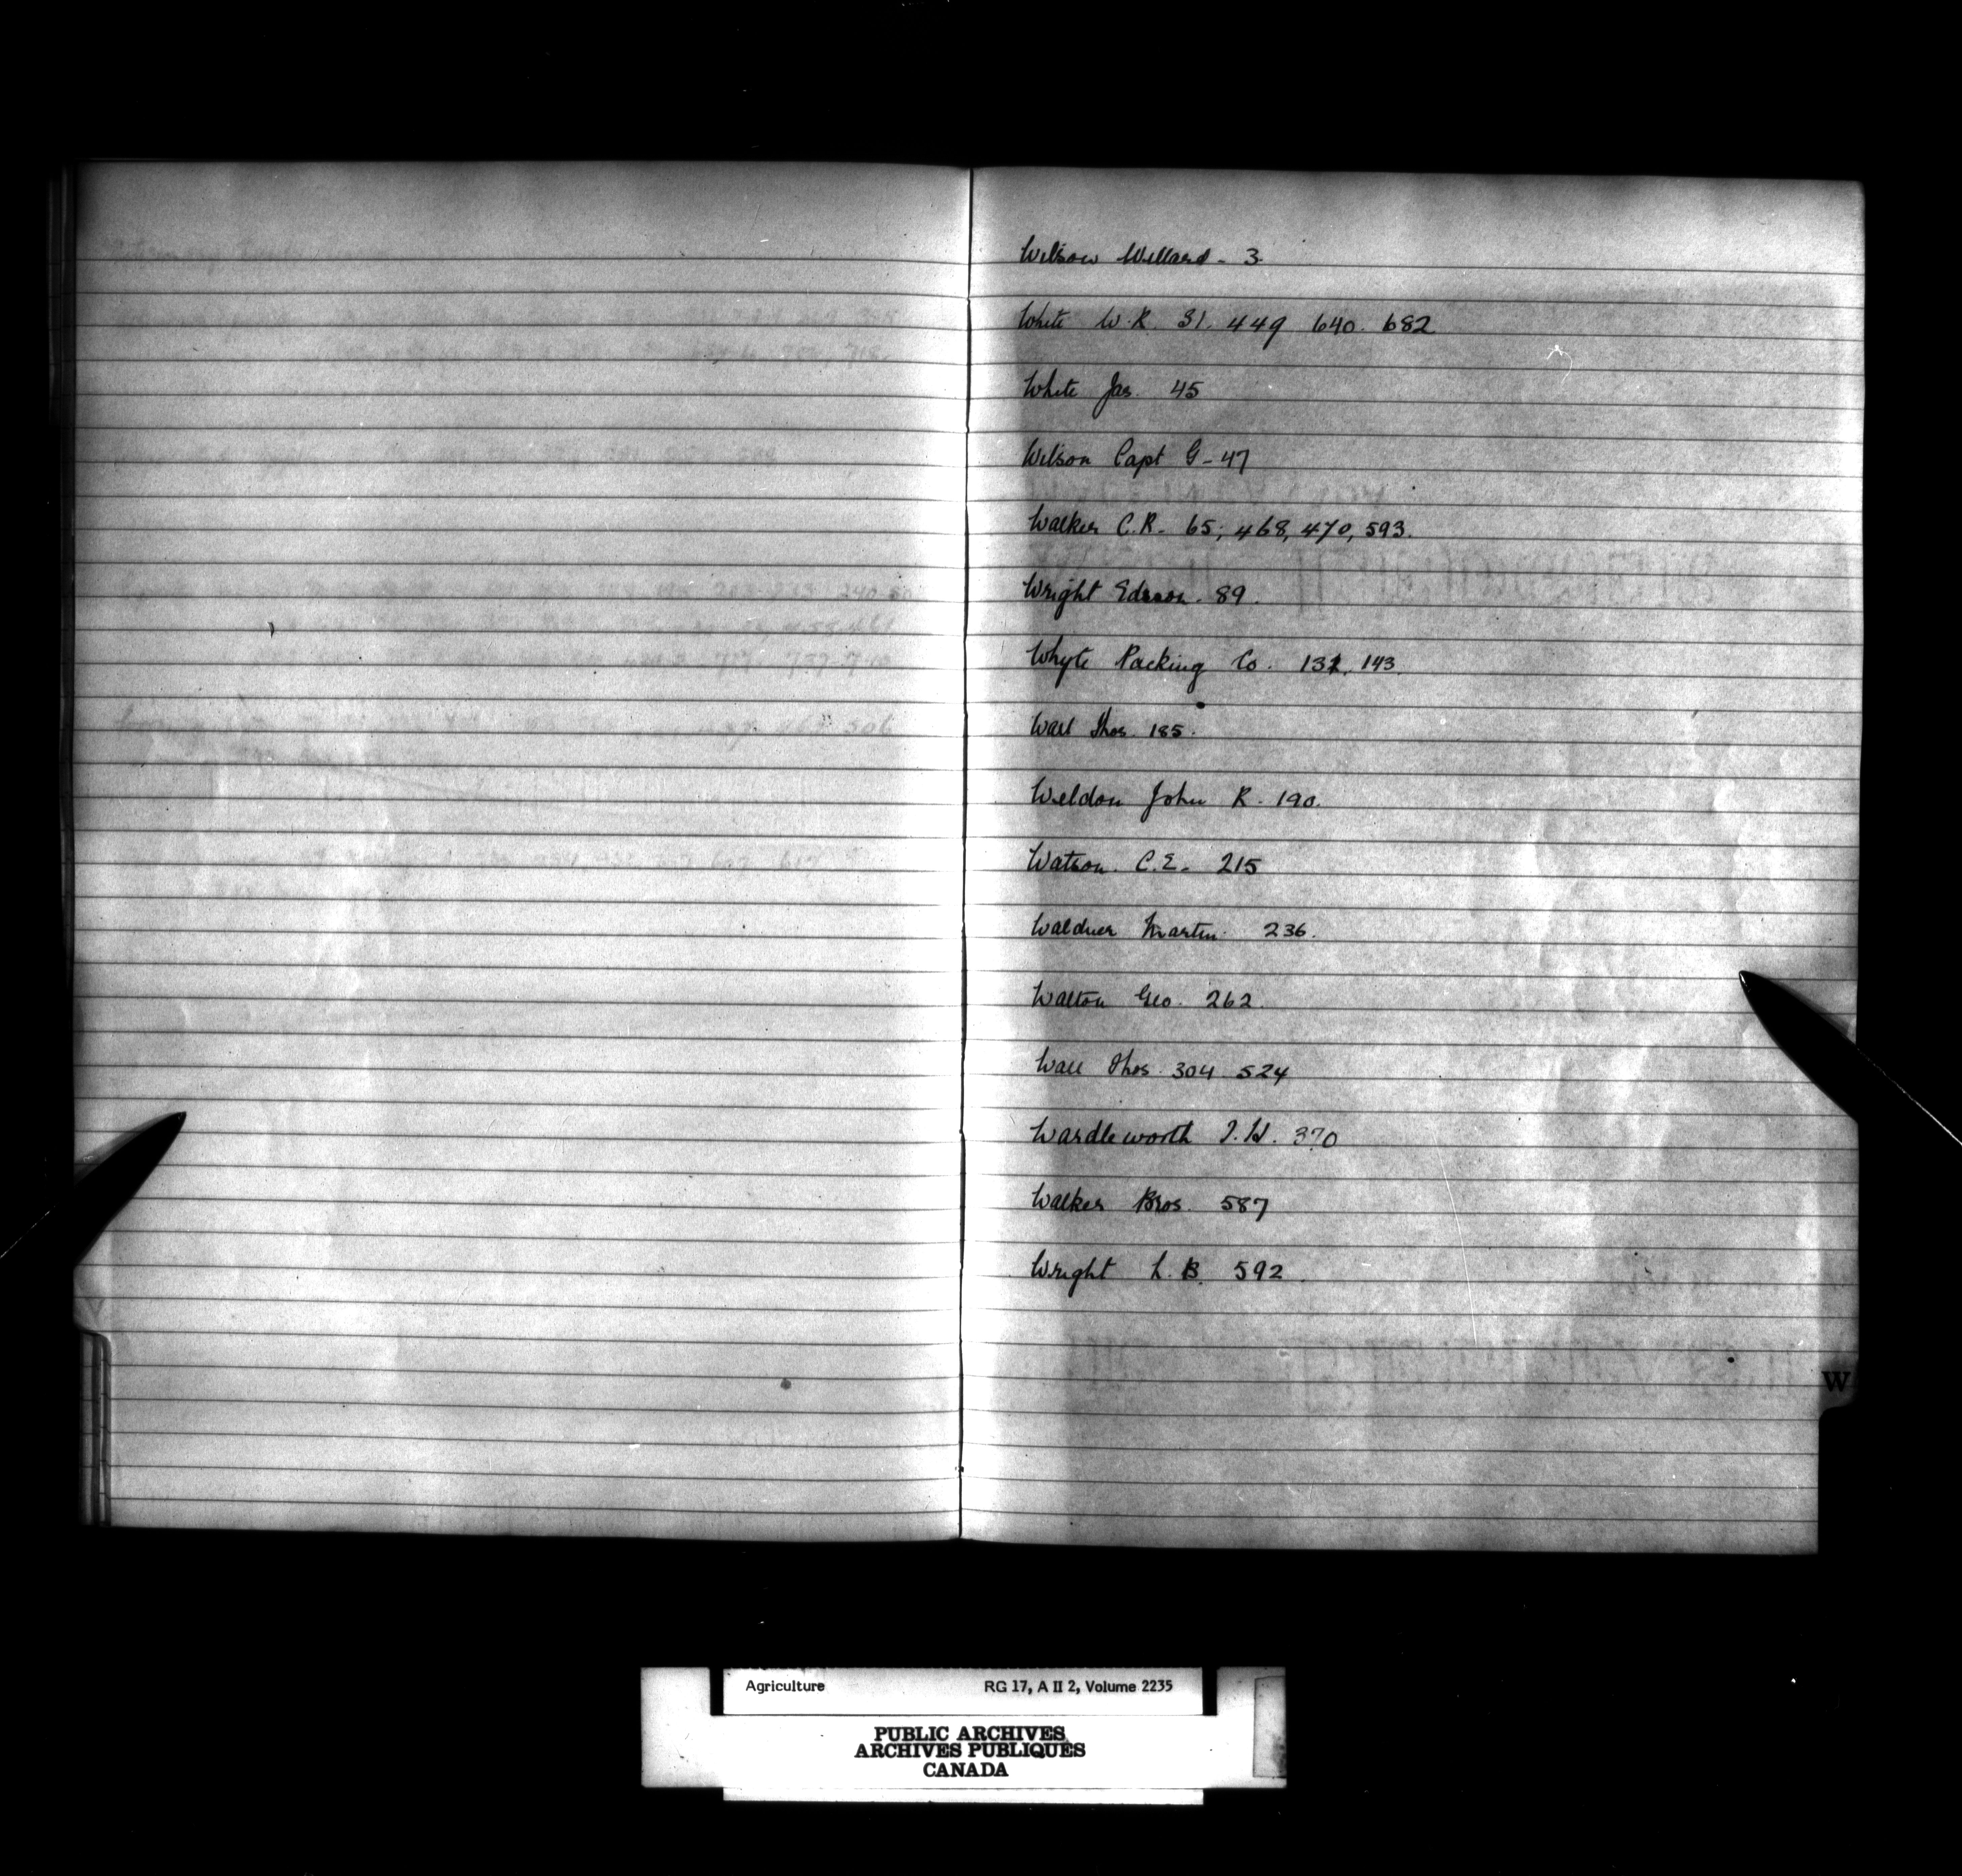 Wilson Willard - 3
White W. R. 31. 449 640. 682
White Jas. 45
Wilson Capt G - 47
Walker C. R. - 65; 468, 470, 593.
Wright Edson. 89.
Whyte Packing Co. 132, 143.
Wall Thos. 185.
Weldon John R. 190.
Watson. C. E. - 215
Waldner Martin. 236.
Walton Geo. 262.
Wall Thos. 304 524
Wardleworth T. H. 370
Walker Bros. 587
Wright L. B. 592.
W
Agriculture RG 17, A II 2, Volume 2235
PUBLIC ARCHIVES
ARCHIVES PUBLIQUES
CANADA